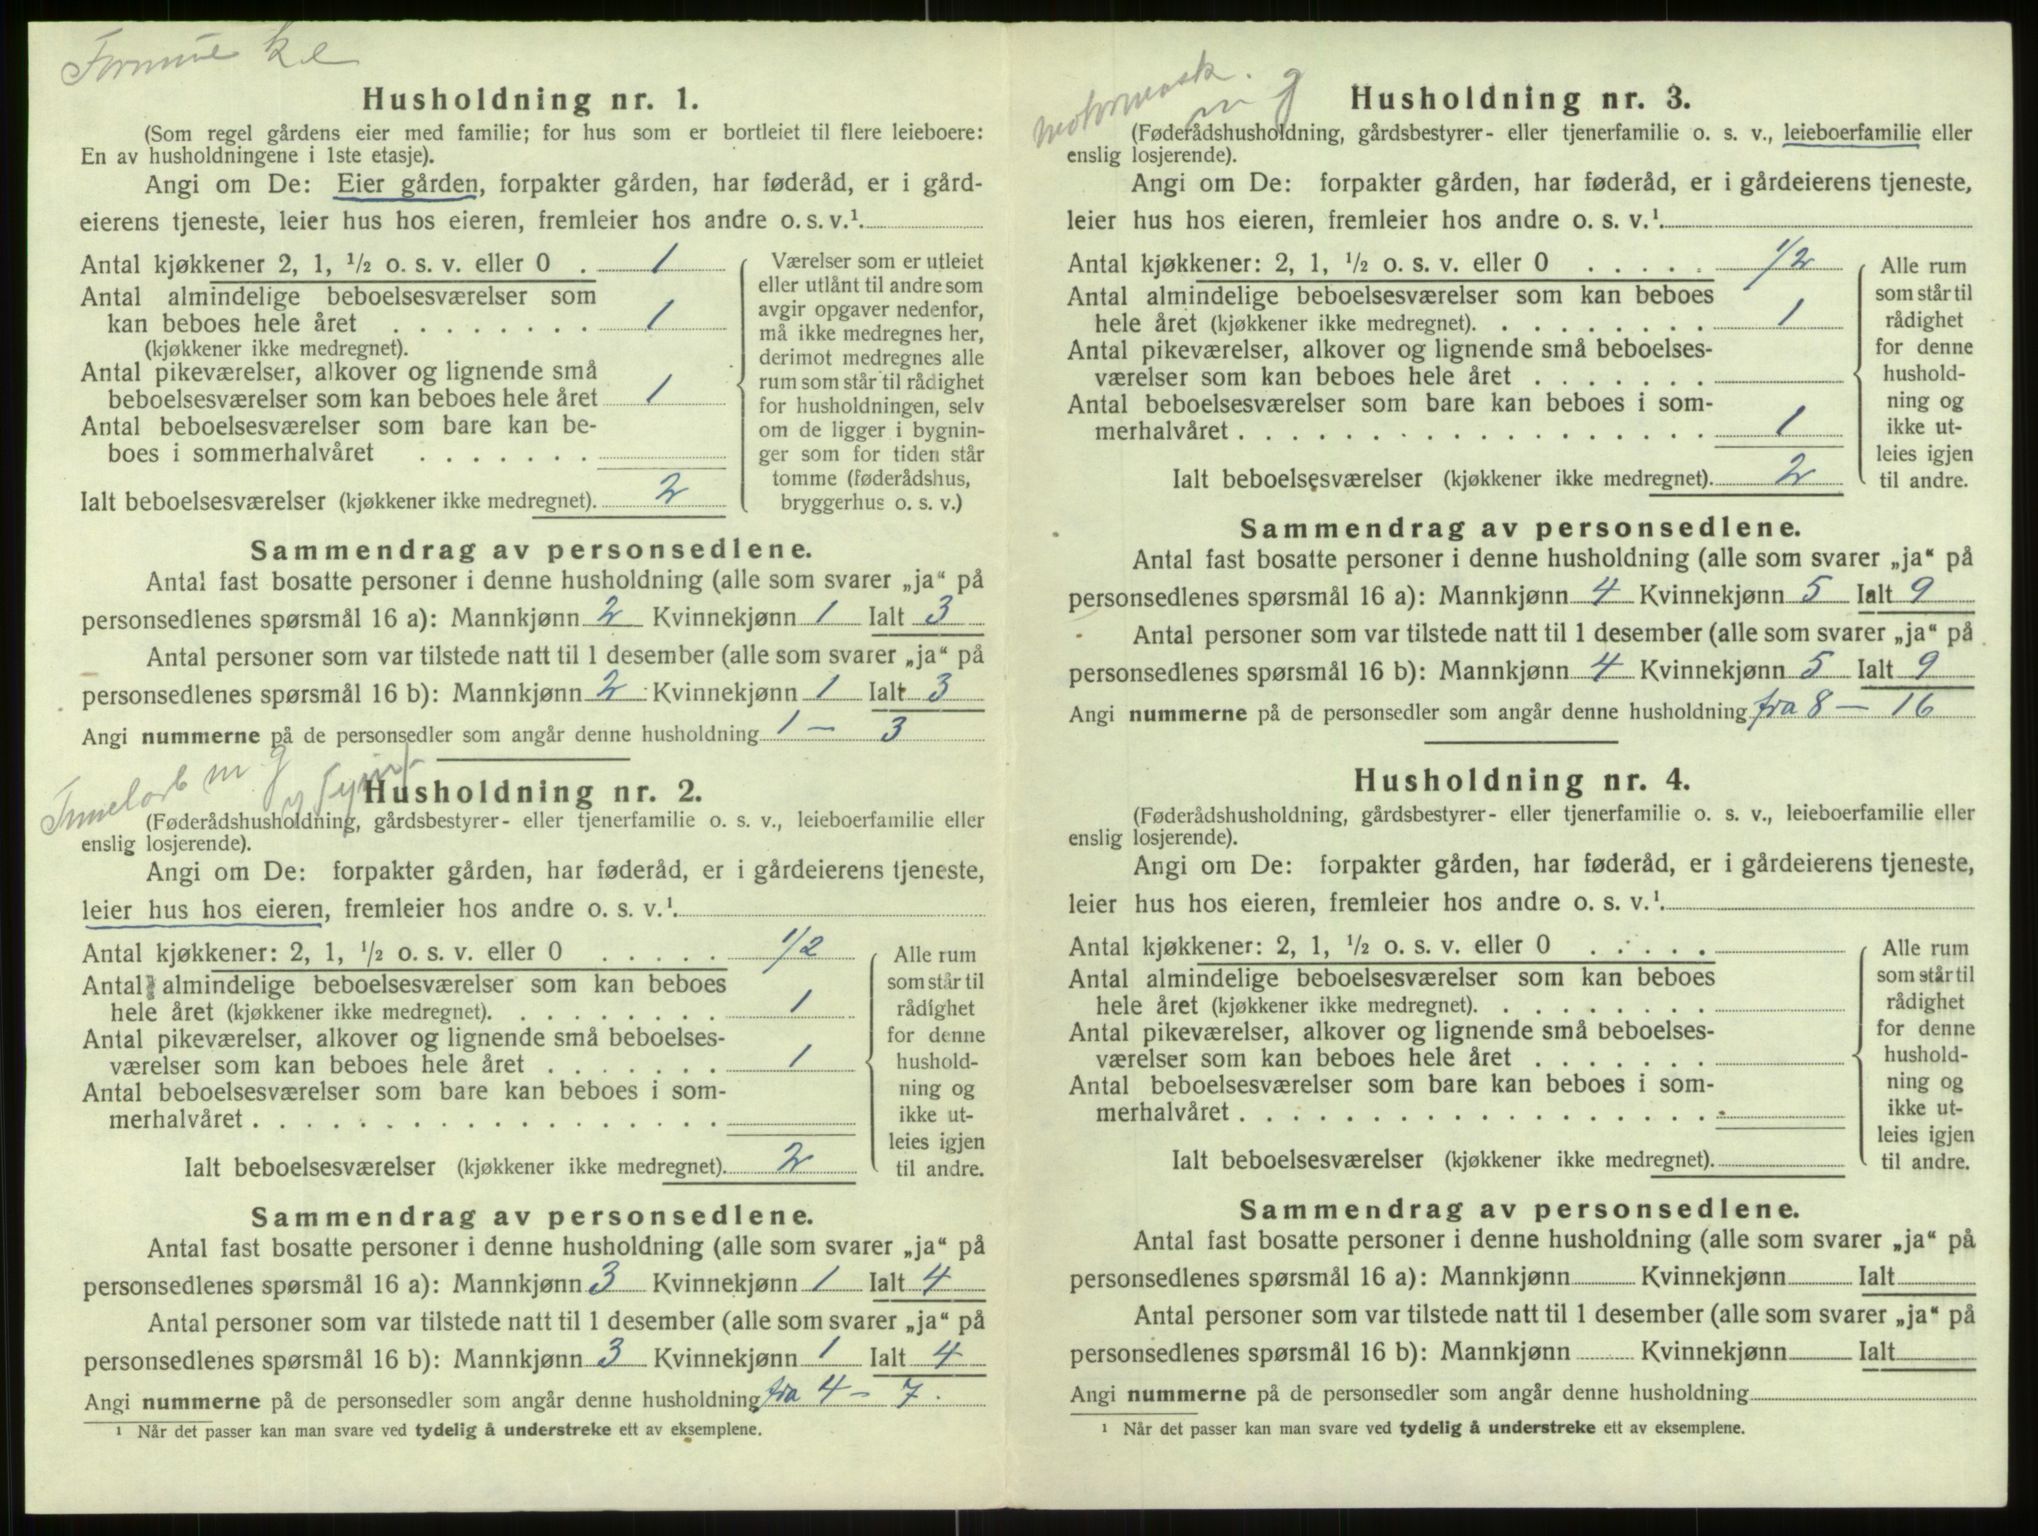 Formue k e
Husholdning nr. 1.
(Som regel gårdens eier med familie; for hus som er bortleiet til flere leieboere:
En av husholdningene i 1ste etasje).
Angi om De: Eier gården, forpakter gården, har føderåd, er i gård-
eierens tjeneste, leier hus hos eieren, fremleier hos andre o. s. v.¹
Antal kjøkkener 2, 1, ½ o. s. v. eller 0 . 1
Antal almindelige beboelsesværelser som
kan beboes hele året . . . . . . . . 1
(kjøkkener ikke medregnet).
Antal pikeværelser, alkover og lignende små
beboelsesværelser som kan beboes hele året 1
Antal beboelsesværelser som bare kan be-
boes i sommerhalvåret . . . . . . .
Ialt beboelsesværelser (kjøkkener ikke medregnet). 2
Værelser som er utleiet
eller utlånt til andre som
avgir opgaver nedenfor,
må ikke medregnes her,
derimot medregnes alle
rum som står til rådighet
for husholdningen, selv
om de ligger i bygnin-
ger som for tiden står
tomme (føderådshus,
bryggerhus o. s. v.)
Sammendrag av personsedlene.
Antal fast bosatte personer i denne husholdning (alle som svarer „ja“ på
personsedlenes spørsmål 16 a): Mannkjønn 2 Kvinnekjønn 1 Ialt 3
Antal personer som var tilstede natt til 1 desember (alle som svarer „ja“ på
personsedlenes spørsmål 16 b): Mannkjønn 2 Kvinnekjønn 1 Ialt 3
Angi nummerne på de personsedler som angår denne husholdning 1 — 3
m g
Husholdning nr. 2.
(Føderådshusholdning, gårdsbestyrer- eller tjenerfamilie o. s. v., leieboerfamilie eller
enslig losjerende).
Angi om De: forpakter gården, har føderåd, er i gårdeierens tjeneste,
leier hus hos eieren, fremleier hos andre o. s. v.¹
Antal kjøkkener: 2, 1, ½ o. s. v. eller 0 . . . . . 1/2
Antal almindelige beboelsesværelser som kan beboes
hele året (kjøkkener ikke medregnet). . . . . . . . . 1
Antal pikeværelser, alkover og lignende små beboelses-
værelser som kan beboes hele året . . . . . . . 1
Antal beboelsesværelser som bare kan beboes i som-
merhalvåret . . . . . . . . . . . . . . . . . .
Ialt beboelsesværelser (kjøkkener ikke medregnet). 2
Alle rum
som står til
rådighet
for denne
hushold-
ning og
ikke ut-
leies igjen
til andre.
Sammendrag av personsedlene.
Antal fast bosatte personer i denne husholdning (alle som svarer „ja“ på
personsedlenes spørsmål 16 a): Mannkjønn 3 Kvinnekjønn 1 Ialt 4
Antal personer som var tilstede natt til 1 desember (alle som svarer „ja“ på
personsedlenes spørsmål 16 b): Mannkjønn 3 Kvinnekjønn 1 Ialt 4
Angi nummerne på de personsedler som angår denne husholdning fra 4 — 7.
¹ Når det passer kan man svare ved tydelig å understreke ett av eksemplene.
m g
Husholdning nr. 3.
(Føderådshusholdning, gårdsbestyrer- eller tjenerfamilie o. s. v., leieboerfamilie eller
enslig losjerende).
Angi om De: forpakter gården, har føderåd, er i gårdeierens tjeneste,
leier hus hos eieren, fremleier hos andre o. s. v.¹
Antal kjøkkener: 2, 1, ½ o. s. v. eller 0 . . . . . 1/2
Antal almindelige beboelsesværelser som kan beboes
hele året (kjøkkener ikke medregnet). . . . . . . . . 1
Antal pikeværelser, alkover og lignende små beboelses-
værelser som kan beboes hele året . . . . . . .
Antal beboelsesværelser som bare kan beboes i som-
merhalvåret . . . . . . . . . . . . . . . . . . 1
Ialt beboelsesværelser (kjøkkener ikke medregnet). 2
Alle rum
som står til
rådighet
for denne
hushold-
ning og
ikke ut-
leies igjen
til andre.
Sammendrag av personsedlene.
Antal fast bosatte personer i denne husholdning (alle som svarer „ja“ på
personsedlenes spørsmål 16 a): Mannkjønn 4 Kvinnekjønn 5 Ialt 9
Antal personer som var tilstede natt til 1 desember (alle som svarer „ja“ på
personsedlenes spørsmål 16 b): Mannkjønn 4 Kvinnekjønn 5 Ialt 9
Angi nummerne på de personsedler som angår denne husholdning fra 8 — 16
Husholdning nr. 4.
(Føderådshusholdning, gårdsbestyrer- eller tjenerfamilie o. s. v., leieboerfamilie eller
enslig losjerende).
Angi om De: forpakter gården, har føderåd, er i gårdeierens tjeneste,
leier hus hos eieren, fremleier hos andre o. s. v.¹
Antal kjøkkener: 2, 1, ½ o. s. v. eller 0 . . . . .
Antal almindelige beboelsesværelser som kan beboes
hele året (kjøkkener ikke medregnet). . . . . . . . .
Antal pikeværelser, alkover og lignende små beboelses-
værelser som kan beboes hele året . . . . . . .
Antal beboelsesværelser som bare kan beboes i som-
merhalvåret . . . . . . . . . . . . . . . . . .
Ialt beboelsesværelser (kjøkkener ikke medregnet).
Alle rum
som står til
rådighet
for denne
hushold-
ning og
ikke ut-
leies igjen
til andre.
Sammendrag av personsedlene.
Antal fast bosatte personer i denne husholdning (alle som svarer „ja“ på
personsedlenes spørsmål 16 a): Mannkjønn Kvinnekjønn Ialt
Antal personer som var tilstede natt til 1 desember (alle som svarer „ja“ på
personsedlenes spørsmål 16 b): Mannkjønn Kvinnekjønn Ialt
Angi nummerne på de personsedler som angår denne husholdning
¹ Når det passer kan man svare ved tydelig å understreke ett av eksemplene.